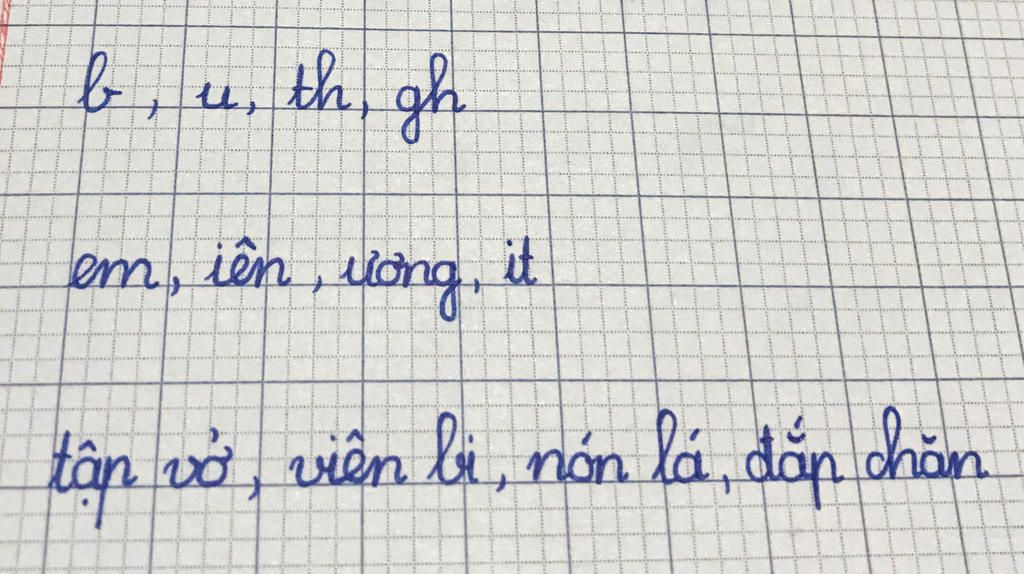 b, u, th, gh
em, iên, ương, it
tập vở, viên bi, nón lá, đắp chăn